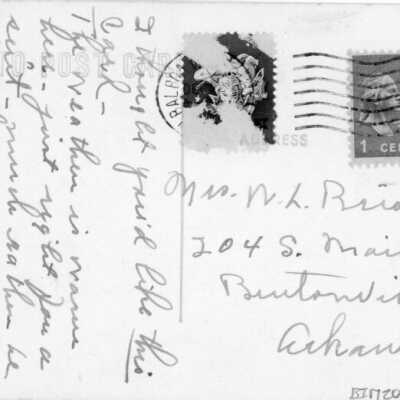 I thought you'd like this
Card -
The weather is warm
here - just right for a
suit - much rather be
O POST CARD
BALBO
ADDRESS
1 CEN
Mrs. W. L.
204 S. Mai
Bentonvi
Arkan